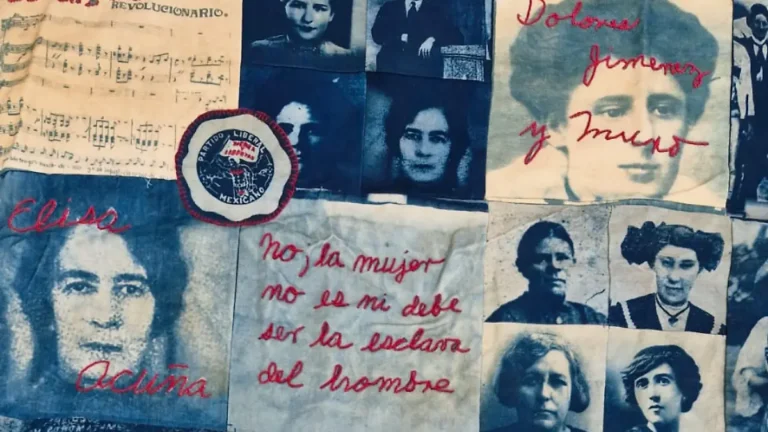 REVOLUCIONARIO.
Dolores
Jimenez
y Muro
PARTIDO LIBERAL
MEXICANO
Elisa
Acuña
No, la mujer
no es ni debe
ser la esclava
del hombre